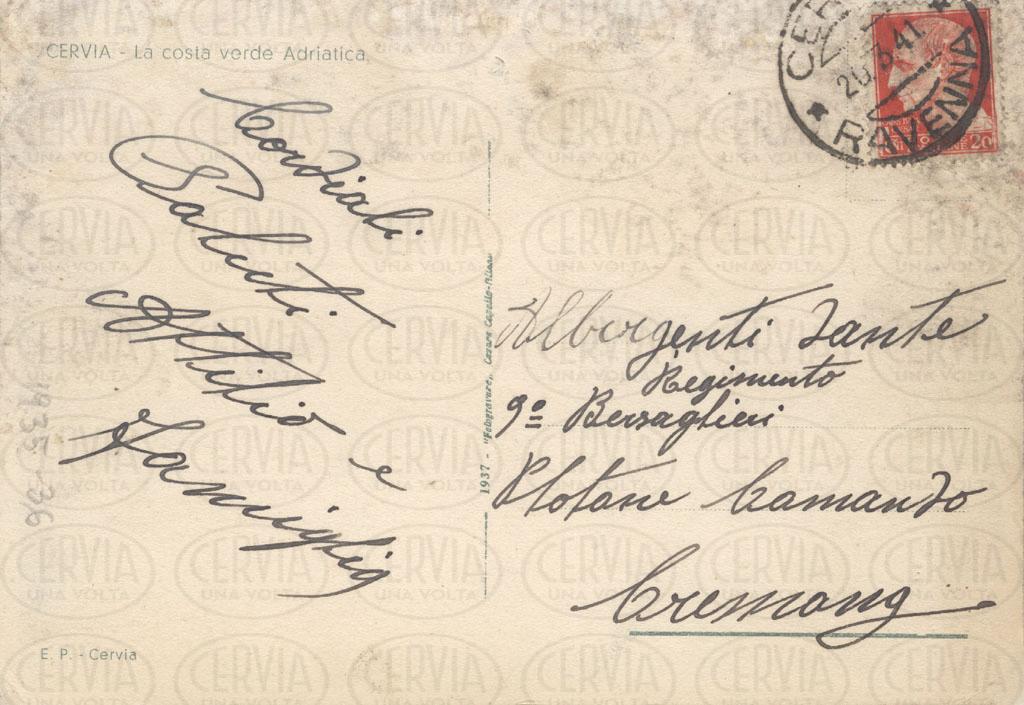 CERVIA - La costa verde Adriatica
Cordiali
Saluti
Attilio e
Famiglia
E. P. - Cervia
1937 - "Fotogravure, Cesare Capello-Milano
RAVENNA
20.3.41
20
Albergenti Sante
Regimento
9º Bersaglieri
Plotone Comando
Cremona
19435-36
CERVIA
UNA VOLTA